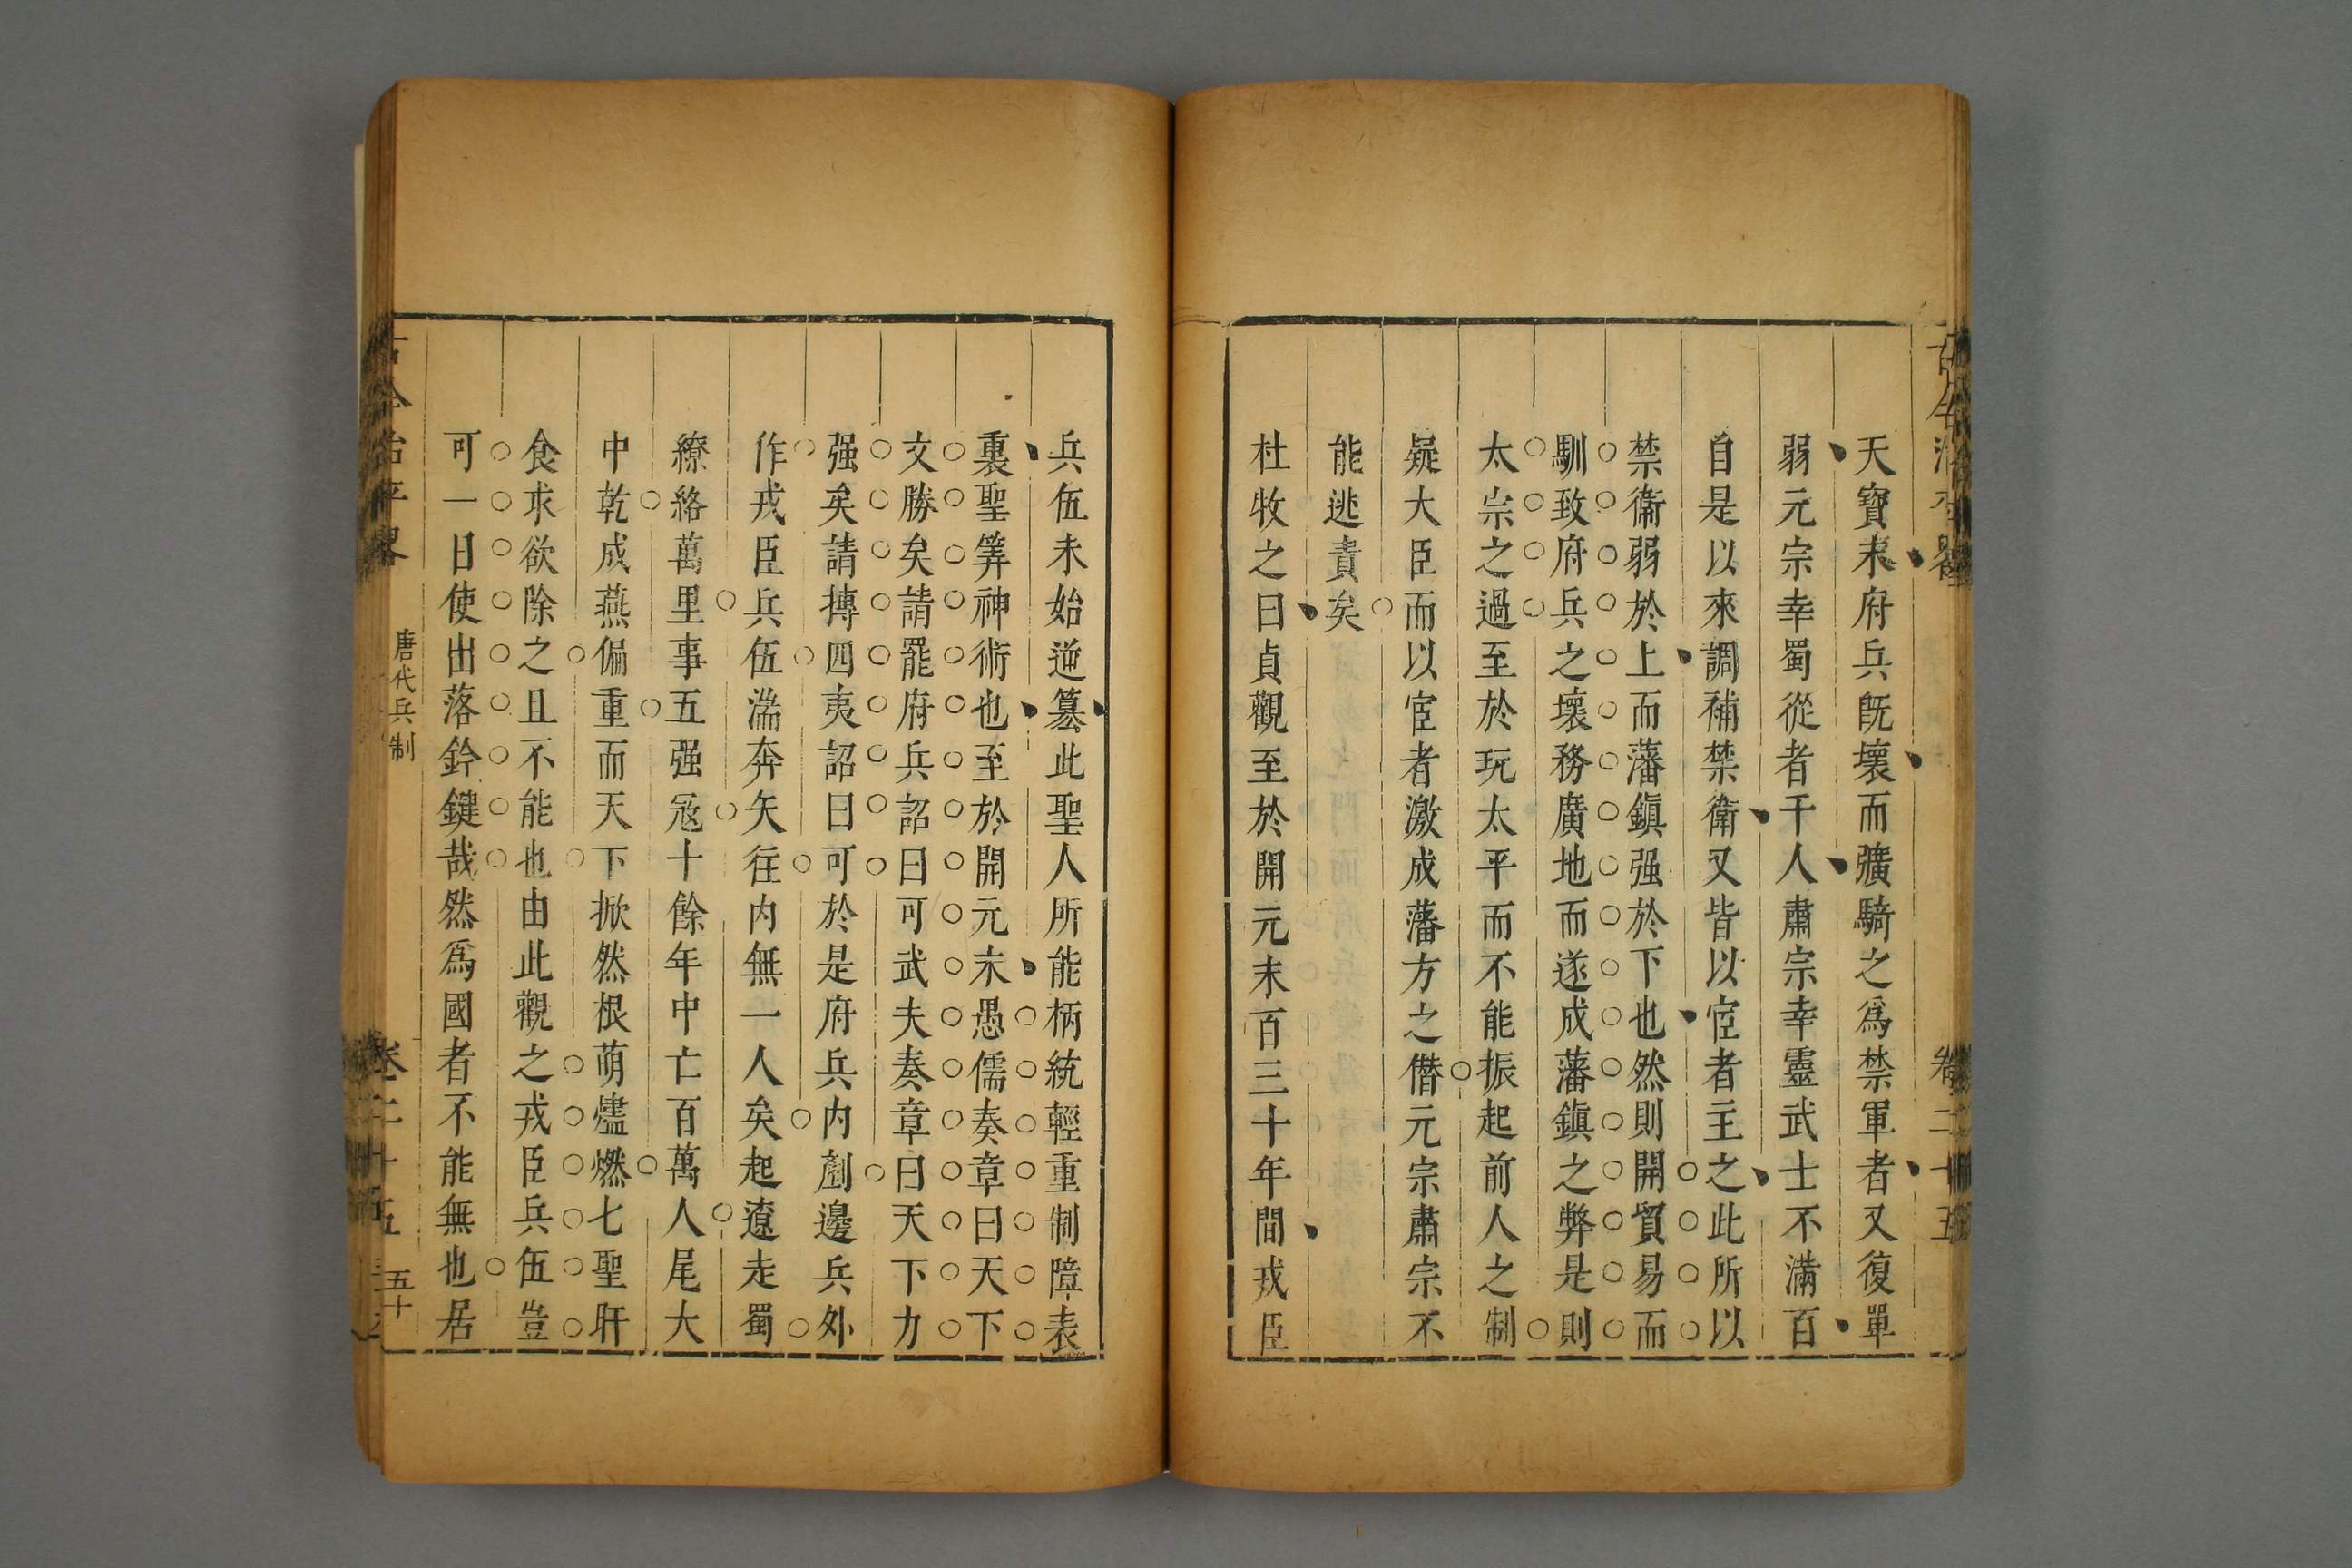 天寶末府兵旣壞而彍騎之爲禁軍者又復單
弱元宗幸蜀從者千人肅宗幸靈武士不滿百
自是以來調補禁衛又皆以宦者主之此所以
禁衛弱於上而藩鎭强於下也然則開貿易而
馴致府兵之壞務廣地而遂成藩鎭之弊是則
太宗之過至於玩太平而不能振起前人之制
疑大臣而以宦者激成藩方之僭元宗肅宗不
能逃責矣
杜牧之曰貞觀至於開元末百三十年間戎臣
兵伍未始逆篡此聖人所能柄統輕重制障表
裏聖筭神術也至於開元末愚儒奏章曰天下
文勝矣請罷府兵詔曰可武夫奏章曰天下力
强矣請摶四夷詔曰可於是府兵内剷邊兵外
作戎臣兵伍湍奔矢往内無一人矣起遼走蜀
繚絡萬里事五强寇十餘年中亡百萬人尾大
中乾成燕偏重而天下掀然根萌燼燃七聖旰
食求欲除之且不能也由此觀之戎臣兵伍豈
可一日使出落鈐鍵哉然爲國者不能無也居
古今治平畧 唐代兵制 卷二十五 五十